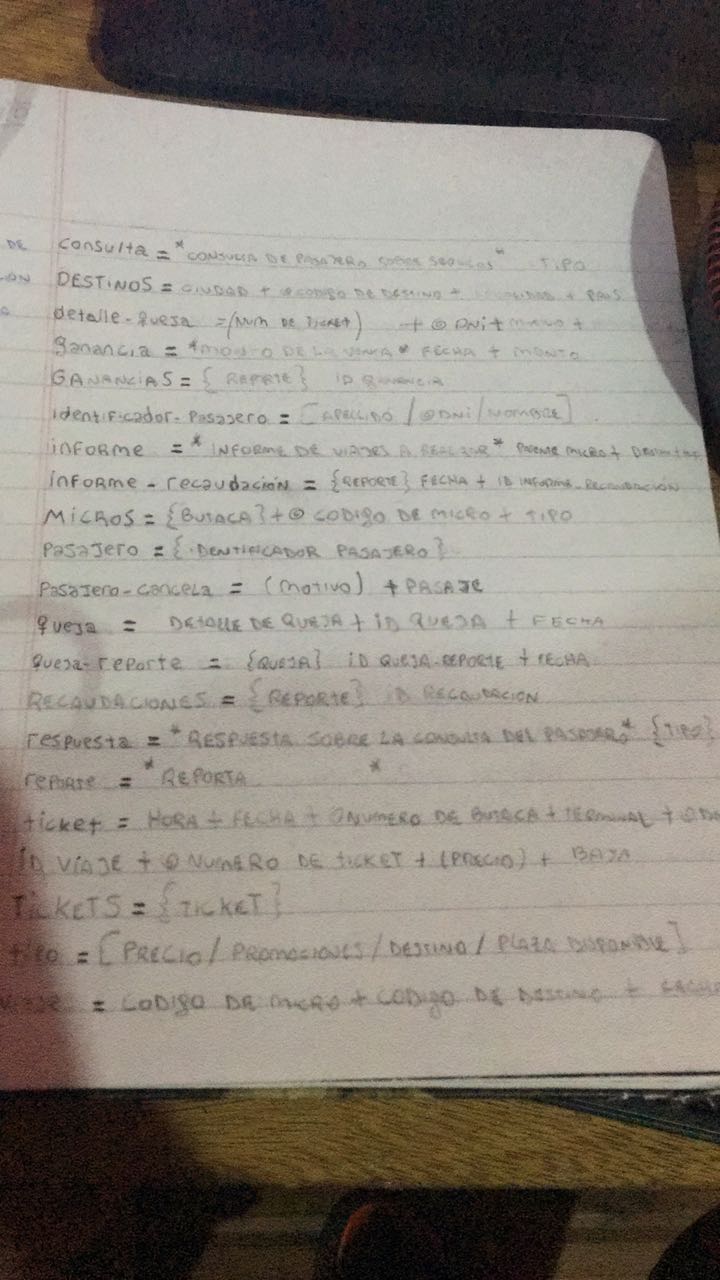 DE consulta = *CONSULTA DE PASAJERO SOBRE SERVICIOS* TIPO
DESTINOS = CIUDAD + @CODIGO DE DESTINO + LOCALIDAD + PAIS
detalle-queja = (NUM DE TICKET) + @ DNI + MOTIVO +
ganancia = *MONTO DE LA VENTA* FECHA + MONTO
GANANCIAS = { REPORTE } ID GANANCIA
identificador-Pasajero = [APELLIDO / @DNI / NOMBRE]
informe = * INFORME DE VIAJES A REALIZAR * MICRO +
informe-recaudación = {REPORTE} FECHA + ID INFORME-RECAUDACIÓN
MICROS = {BUTACA} + @ CODIGO DE MICRO + TIPO
Pasajero = {IDENTIFICADOR PASAJERO}
Pasajero-cancela = (MOTIVO) + PASAJE
queja = DETALLE DE QUEJA + ID QUEJA + FECHA
queja-reporte = {QUEJA} ID QUEJA-REPORTE + FECHA
RECAUDACIONES = {REPORTE} ID RECAUDACION
respuesta = *RESPUESTA SOBRE LA CONSULTA DEL PASAJERO* {TIPO}
rePorte = *REPORTA *
ticket = HORA + FECHA + @NUMERO DE BUTACA + TERMINAL +
ID VIAJE + @ NUMERO DE TICKET + (PRECIO) + BAJA
TICKETS = {TICKET}
tipo = [PRECIO / PROMOCIONES / DESTINO / PLAZA DISPONIBLE]
= CODIGO DE MICRO + CODIGO DE DESTINO + FECHA